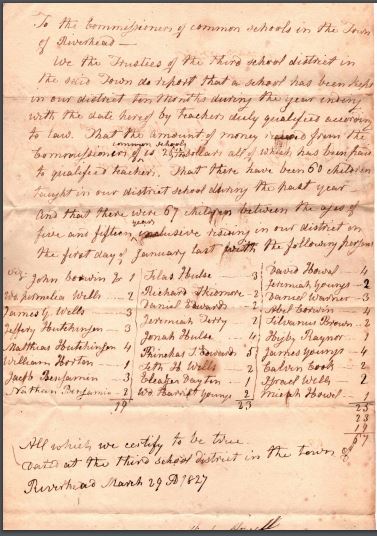 To the Commissioners of common schools in the Town
of Riverhead —
We the Trustees of the third school district in
the said Town do report that a school has been kept
in our district ten months during the year ending
with the date hereof by teachers duly qualified according
to law. That the amount of money from the
common schools
Commissioners of is dollars all of which has been paid
to qualified teachers. That there have been 60 children
taught in our district school during the past year
And that there were 67 children between the ages of
years
five and fifteen inclusive residing in our district on
the first day of January last with the following persons
viz. John Corwin 1 Silas Hulse 3 David Howel 4
Wd Permelia Wells 2 Richard Skidmore 2 Jeremiah Youngs 2
James Y. Wells 3 Daniel Edwards 2 Daniel Warner 3
Jeffery Hutchinson 3 Jeremiah Terry 2 Abel Corwin 4
Matthias Hutchinson 4 Jonah Hulse 4 Silvanus Brown 2
William Horton 1 Phinehas S Edwards 5 Raynor
Jacob Benjamin 3 Seth H Wells 2 James Youngs 4
Nathan Benjamin 2 Eleazer Dayton 1 Calvin Cook 2
19 Wd Harriet Youngs 2 Israel Wells 2
23 Howel 1
25
23
19
67
All which we certify to be true
Dated at the third school district in the town of
Riverhead March 29 AD 1827